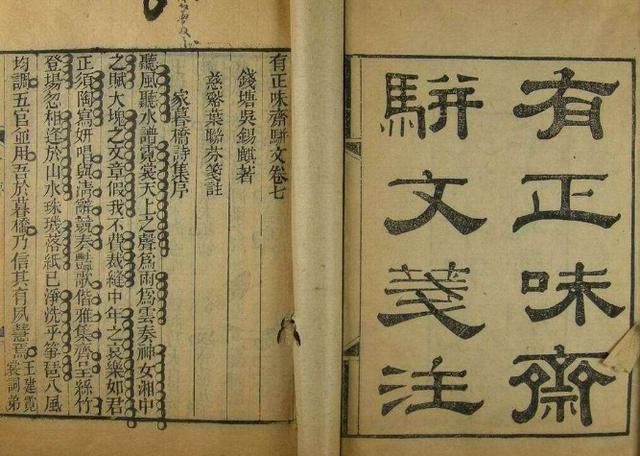 有正味齋
駢文箋注
有正味齋駢文卷七
錢塘吳錫麒著
慈谿葉聯芬箋註
家暮橋詩集序
聽風聽水譜霓裳天上之聲爲雨爲雲奏神女湘中
之賦大塊之文章假我不費裁縫中年之哀樂如君
正須陶寫妍唱與清辭競奏豔歌偕雅集齊呈絲竹
登場忽相逢於山水珠璣落紙已淨洗乎箏琶八風
均調五官並用吾於暮橋乃信其有夙慧焉王建霓裳詞弟